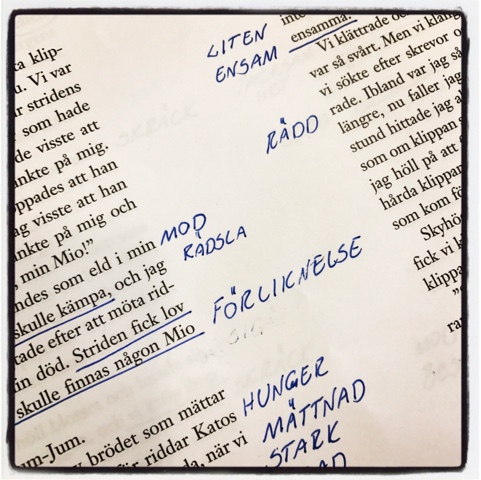 ta klip-
u. Vi var
r stridens
som hade
de visste att
nkte på mig.
ppades att han
ag visste att han
nkte på mig och
, min Mio!”
ndes som eld i min
skulle kämpa, och jag
tade efter att möta rid-
in död. Striden fick lov
skulle finnas någon Mio
um-Jum.
brödet som mättar
för riddar Katos
da, när vi
LITEN
ENSAM
RÄDD
MOD
RÄDSLA
FÖRLIKNELSE
HUNGER
MÄTTNAD
STARK
ensamma.
Vi klättrade oc
var så svårt. Men vi kläng
vi sökte efter skrevor o
rade. Ibland var jag så
längre, nu faller jag
stund hittade jag a
som om klippan s
jag höll på att
hårda klippan
som kom fö
Skyhö
fick vi k
klippa